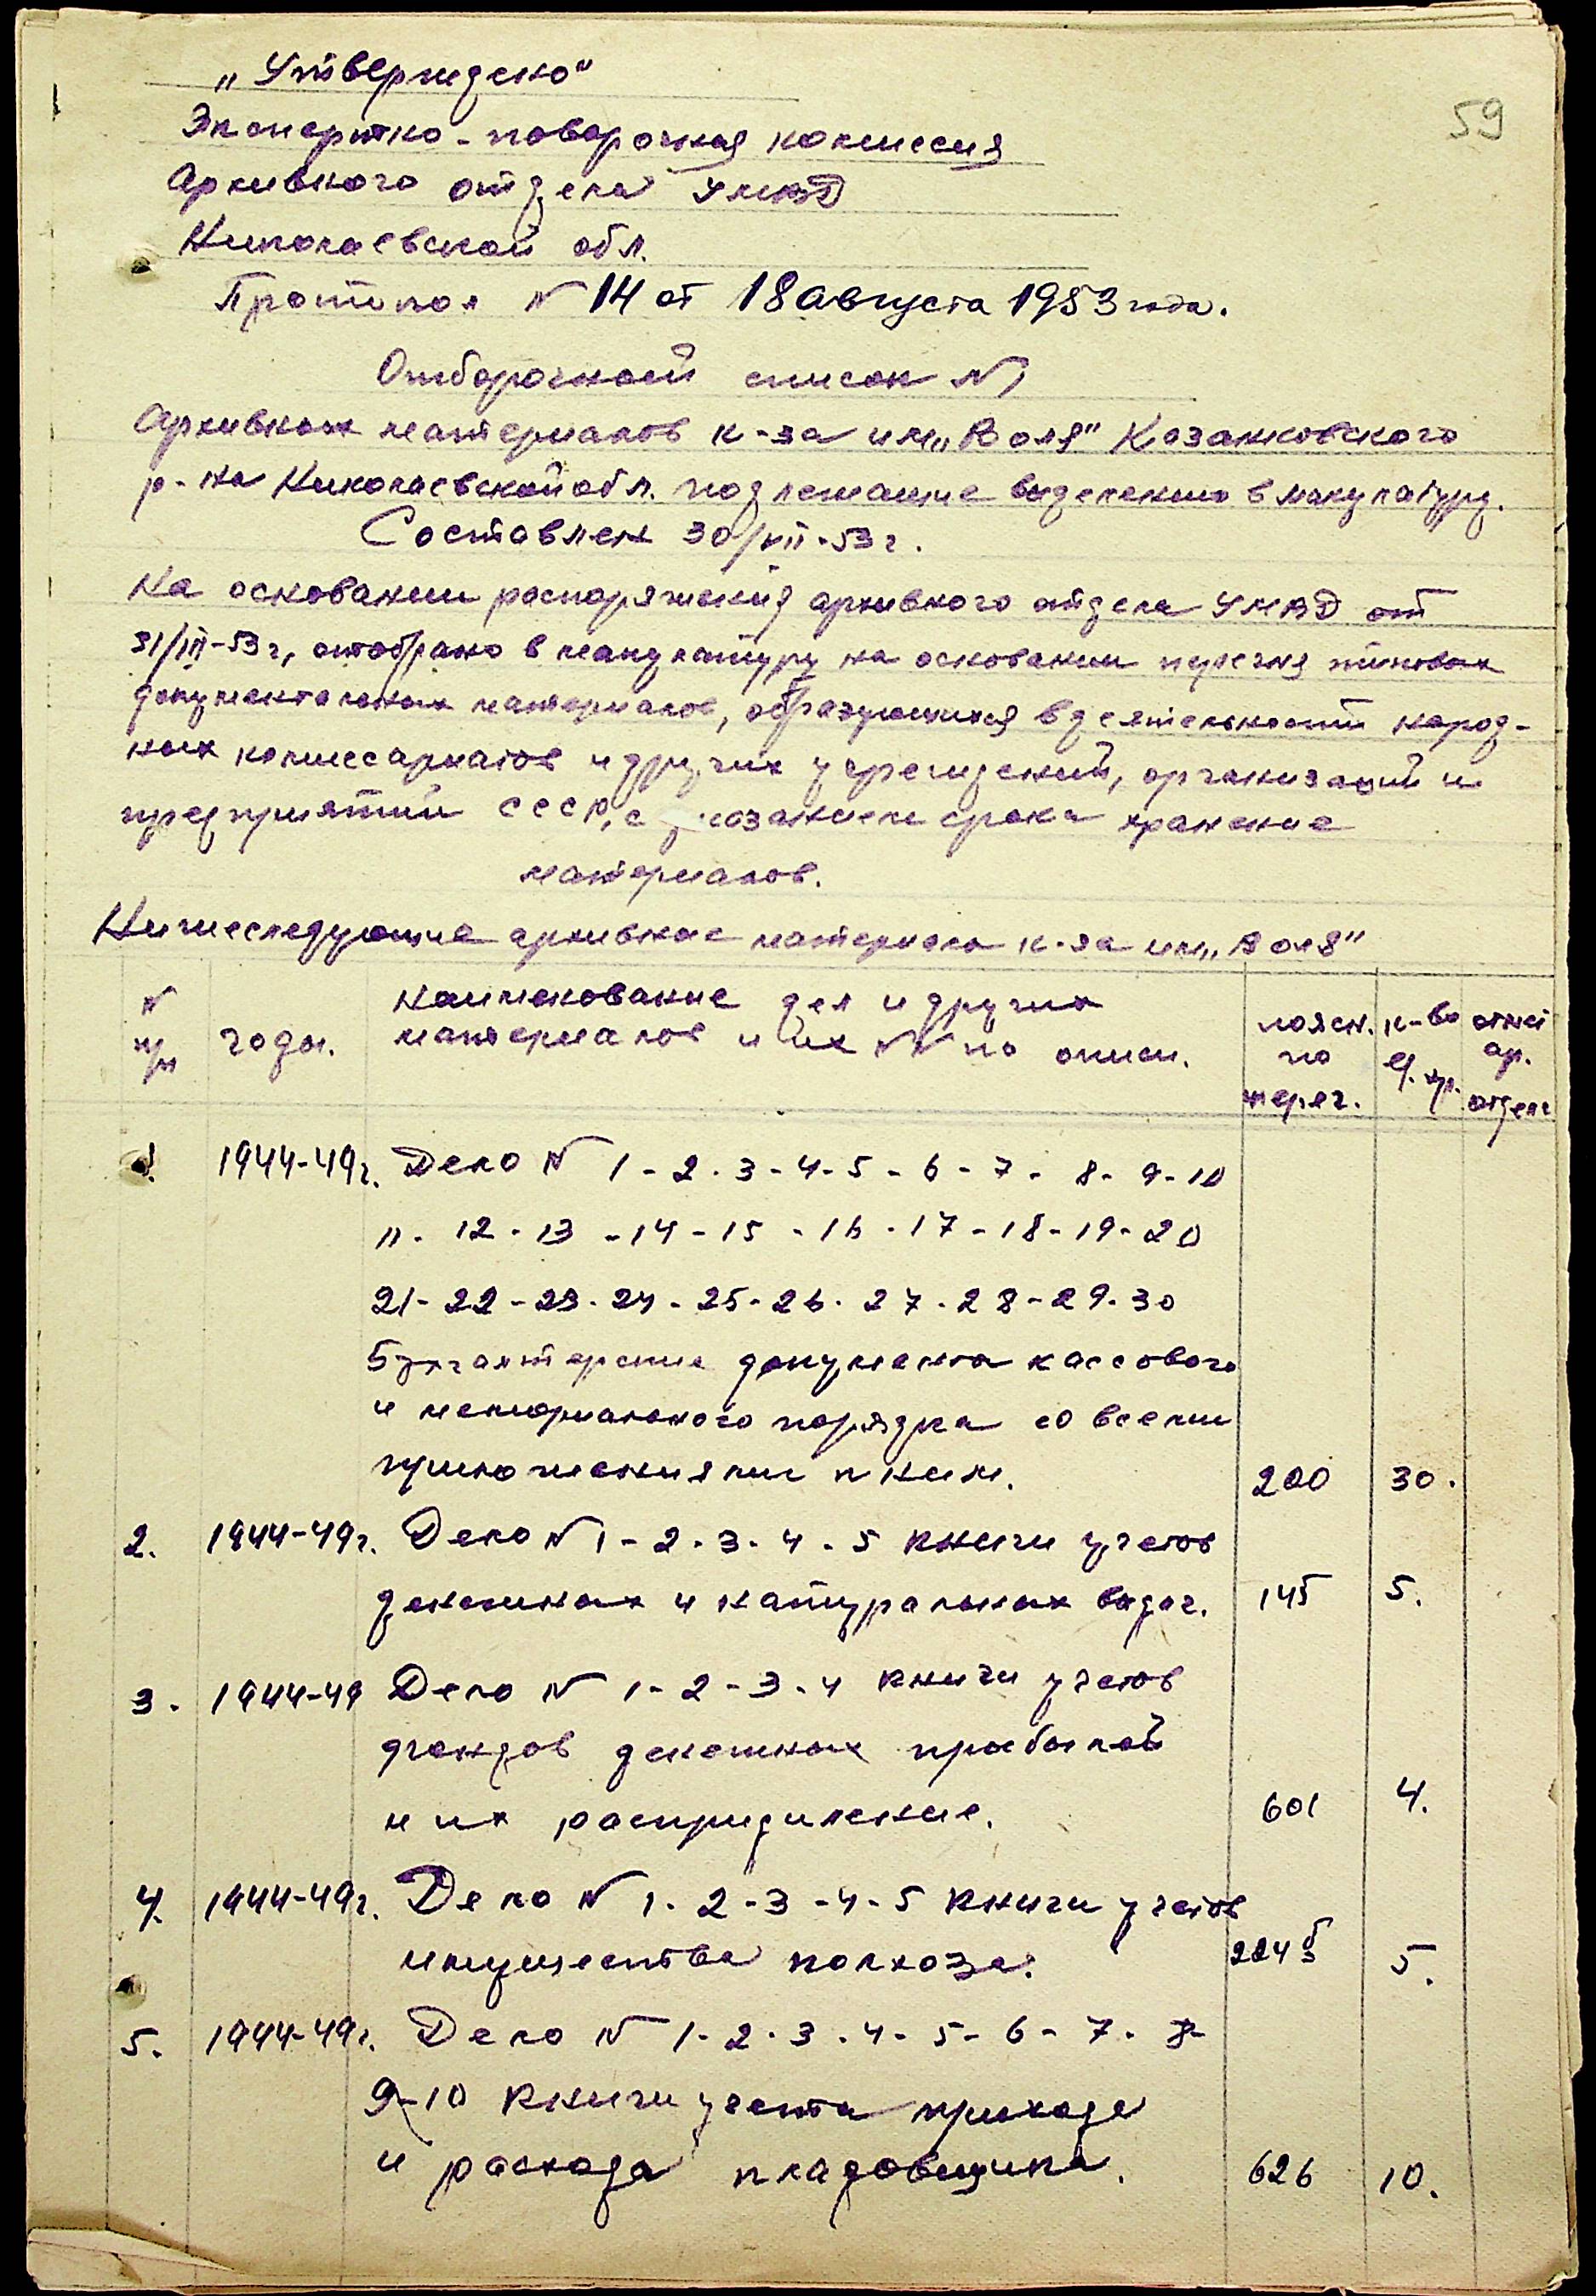 59
„Утверждено"
Экспертно-поверочная комиссия
Архивного отдела УМВД
Николаевской обл.
Протокол N 14 от 18 августа 1953 года.
Отборочный список N 1
Архивных материалов к-за им „Воля" Казанковского
р-на Николаевской обл. подлежащие выделению в макулатуру.
Составлен 30/VII-53 г.
На основании распоряжения архивного отдела УМВД от
31/III-53 г, отобрано в макулатуру на основании перечня типовых
документальных материалов, образующихся в деятельности народ-
ных комиссариатов и других учреждений, организаций и
предприятий СССР, с указанием срока хранение
материалов.
Нижеследующие архивные материалы к-за им „Воля"
N п/п годы. наименование дел и других материалов и их NN по описи. поясн. по переч. к-во ед. хр. отмет ар. отдела
1. 1944-49 г. Дело N 1-2-3-4-5-6-7-8-9-10
11-12-13-14-15-16-17-18-19-20
21-22-23-24-25-26-27-28-29-30
Бухгалтерские документы кассового
и мемориального порядка со всеми
приложениями к ним. 200 30.
2. 1944-49 г. Дело N 1-2-3-4-5 книги учетов
денежных и натуральных выдач. 145 5.
3. 1944-49 Дело N 1-2-3-4 книги учетов
фондов денежных прибылей
и их распридиление. 601 4.
4. 1944-49 г. Дело N 1-2-3-4-5 книги учетов
имущества колхоза. 224 б 5.
5. 1944-49 г. Дело N 1-2-3-4-5-6-7-8-
9-10 книги учета прихода
и расхода кладовщика. 626 10.